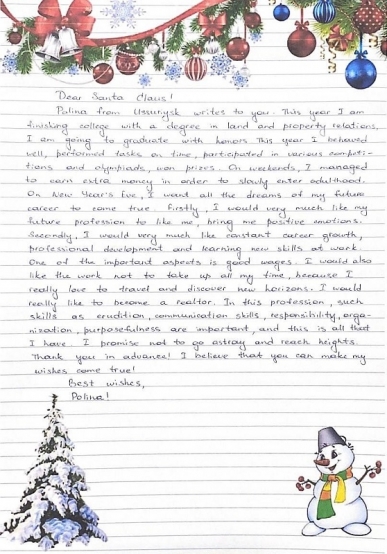 Dear Santa Claus!
Polina from Ussuriysk writes to you. This year I am
finishing college with a degree in land and property relations,
I am going to graduate with honors. This year I behaved
well, performed tasks on time, participated in various competi-
tions and olympiads, won prizes. On weekends, I managed
to earn extra money in order to slowly enter adulthood.
On New Year's Eve, I want all the dreams of my future
career to come true. Firstly, I would very much like my
future profession to like me, bring me positive emotions.
Secondly, I would very much like constant career growth,
professional development and learning new skills at work.
One of the important aspects is good wages. I would also
like the work not to take up all my time, because I
really love to travel and discover new horizons. I would
really like to become a realtor. In this profession, such
skills as erudition, communication skills, responsibility, orga-
nisation, purposefulness are important, and this is all that
I have. I promise not to go astray and reach heights.
Thank you in advance! I believe that you can make my
wishes come true!
Best wishes,
Polina!